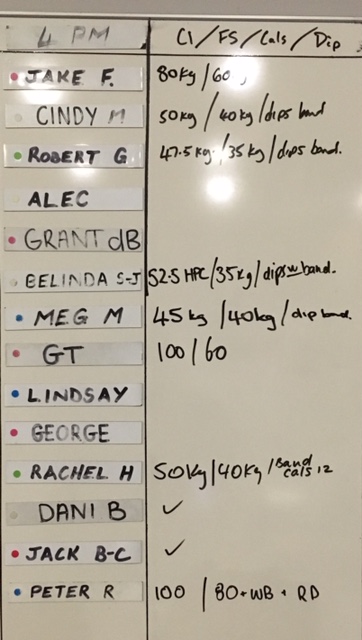 4 PM Cl/FS/Cals/Dip
JAKE F. 80kg/60
CINDY M 50kg/40kg/dips band
ROBERT G 47.5kg/35kg/dips band.
ALEC
GRANT dB
BELINDA S-J 52.5 HPC/35kg/dips w band.
MEG M 45kg/40kg/dip band.
GT 100/60
LINDSAY
GEORGE
RACHEL H 50kg/40kg/Band cals 12
DANI B ✓
JACK B-C ✓
PETER R 100 / 80+WB + RD